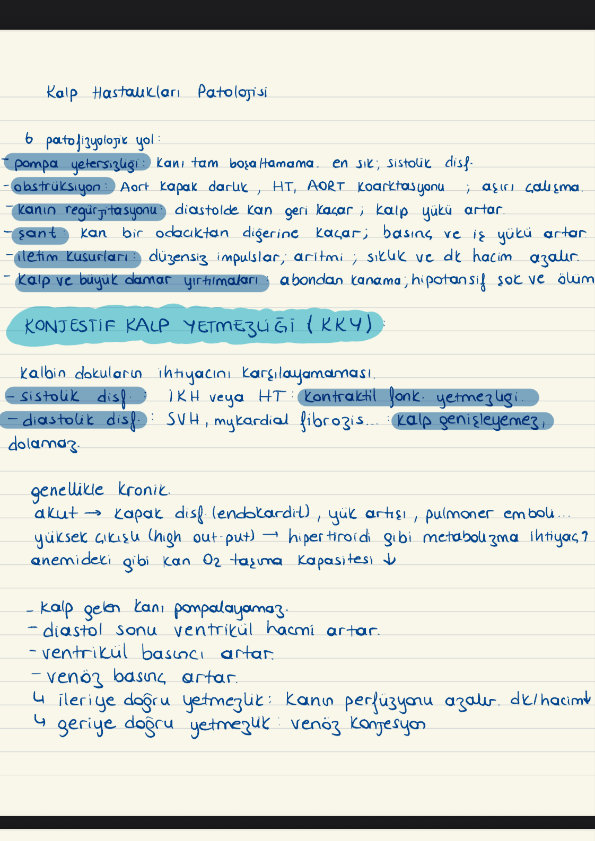 Kalp Hastalıkları Patolojisi
6 patofizyolojik yol:
- pompa yetersizliği: kanı tam boşaltamama. en sık; sistolik disf.
- obstrüksiyon: Aort kapak darlık, HT, AORT koarktasyonu ; aşırı çalışma.
- kanın regürjitasyonu: diastolde kan geri kaçar; kalp yükü artar.
- şant: kan bir odacıktan diğerine kaçar; basınç ve iş yükü artar
- iletim kusurları: düzensiz impulslar, aritmi; sıklık ve dk hacim azalır.
- kalp ve büyük damar yırtılmaları: abondan kanama, hipotansif şok ve ölüm
KONJESTİF KALP YETMEZLİĞİ (KKY):
Kalbin dokuların ihtiyacını karşılayamaması.
- sistolik disf.: İKH veya HT: kontraktil fonk. yetmezliği.
- diastolik disf.: SVH, mykardial fibrozis... : kalp genişleyemez,
dolamaz.
genellikle kronik.
akut → kapak disf. (endokardit), yük artışı, pulmoner emboli...
yüksek çıkışlı (high out-put) → hipertiroidi gibi metabolizma ihtiyaç↑
anemideki gibi kan O2 taşıma kapasitesi ↓
- kalp gelen kanı pompalayamaz.
- diastol sonu ventrikül hacmi artar.
- ventrikül basıncı artar.
- venöz basınç artar.
↳ ileriye doğru yetmezlik: kanın perfüzyonu azalır. dk/hacim↓
↳ geriye doğru yetmezlik: venöz konjesyon